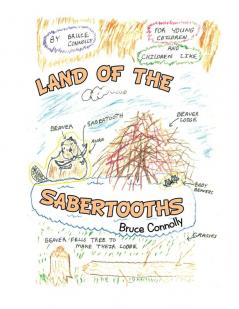 BY BRUCE
CONNOLLY
FOR YOUNG
CHILDREN
AND
CHILDREN LIKE
LAND OF THE
SABERTOOTH
BEAVER
BEAVER
LODGE
BABY
BEAVERS
SABERTOOTHS
Bruce Connolly
GRASSES
BEAVER FELLS TREE TO
MAKE THEIR LODGE